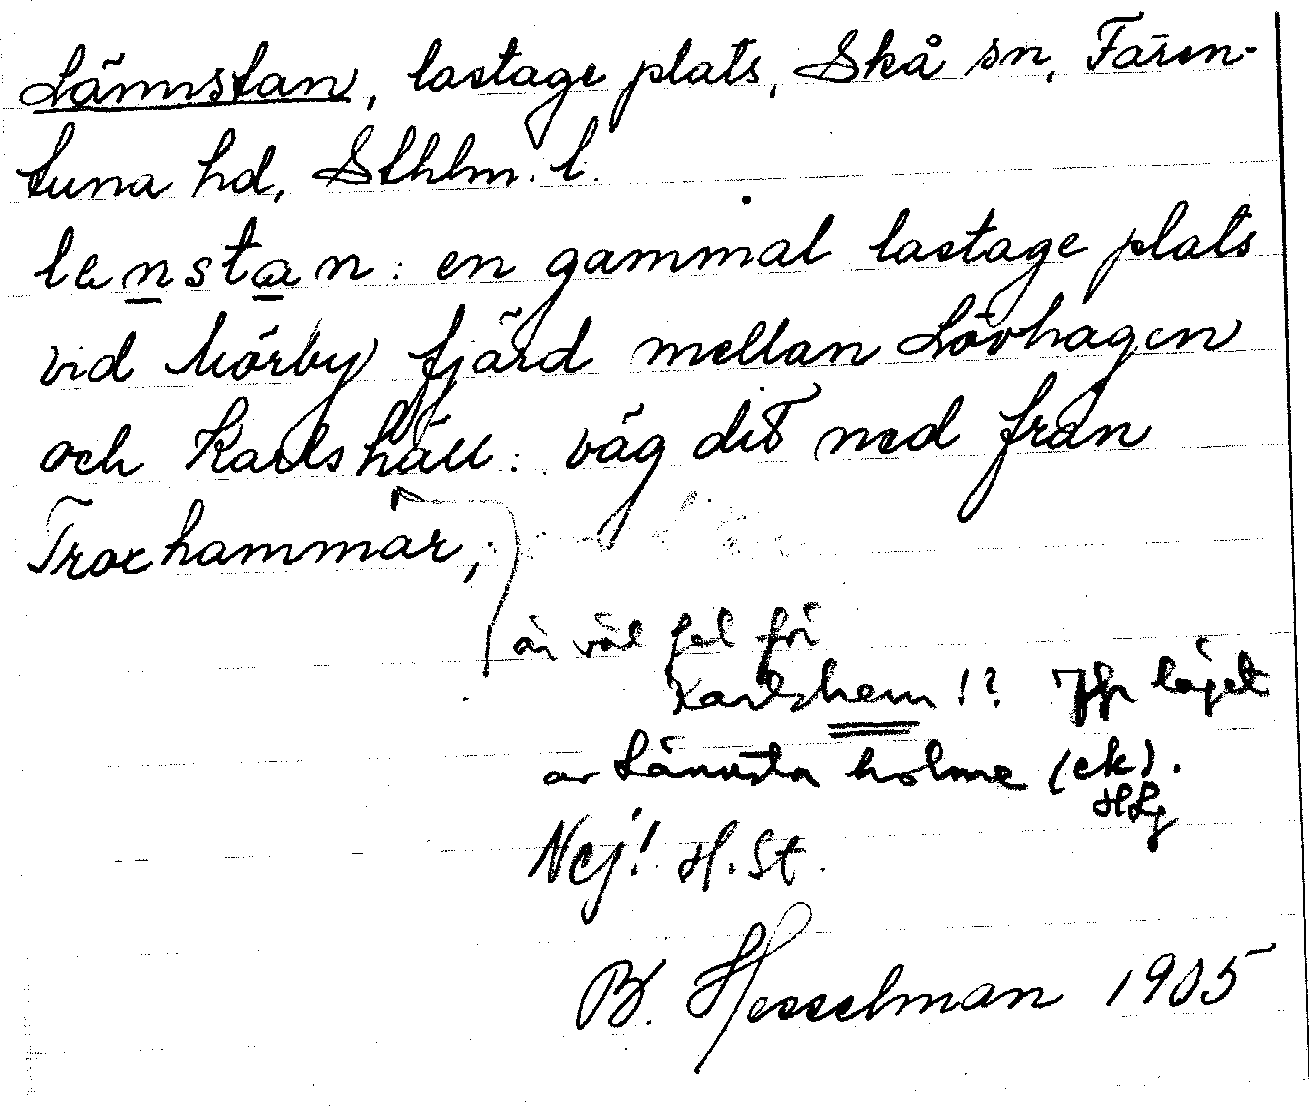 Lännstan, lastage plats, Skå sn, Fären-
tuna hd, Sthlm. l.
lenstan: en gammal lastage plats
vid Mörby fjärd mellan Lövhagen
och Karlshäll: väg dit ned från
Troxhammar,
är väl fel för
Karlshem!? Jfr läget
av Lännsta holme (ek).
HLg
Nej! H. St.
B. Hesselman 1905